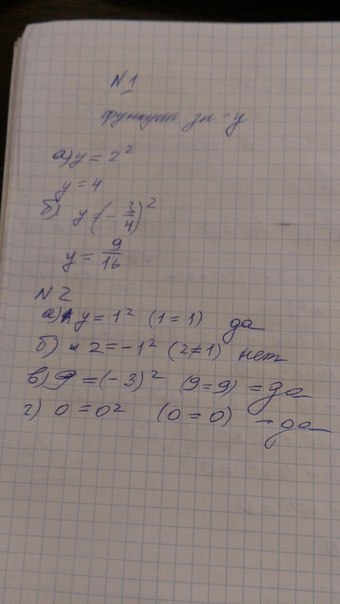 N1
функции зн - y
а) y = 2²
y = 4
б) y = (-3/4)²
y = 9/16
N2
а) y = 1² (1 = 1) да
б) 2 = -1² (2 ≠ 1) нет
в) 9 = (-3)² (9 = 9) = да
г) 0 = 0² (0 = 0) - да